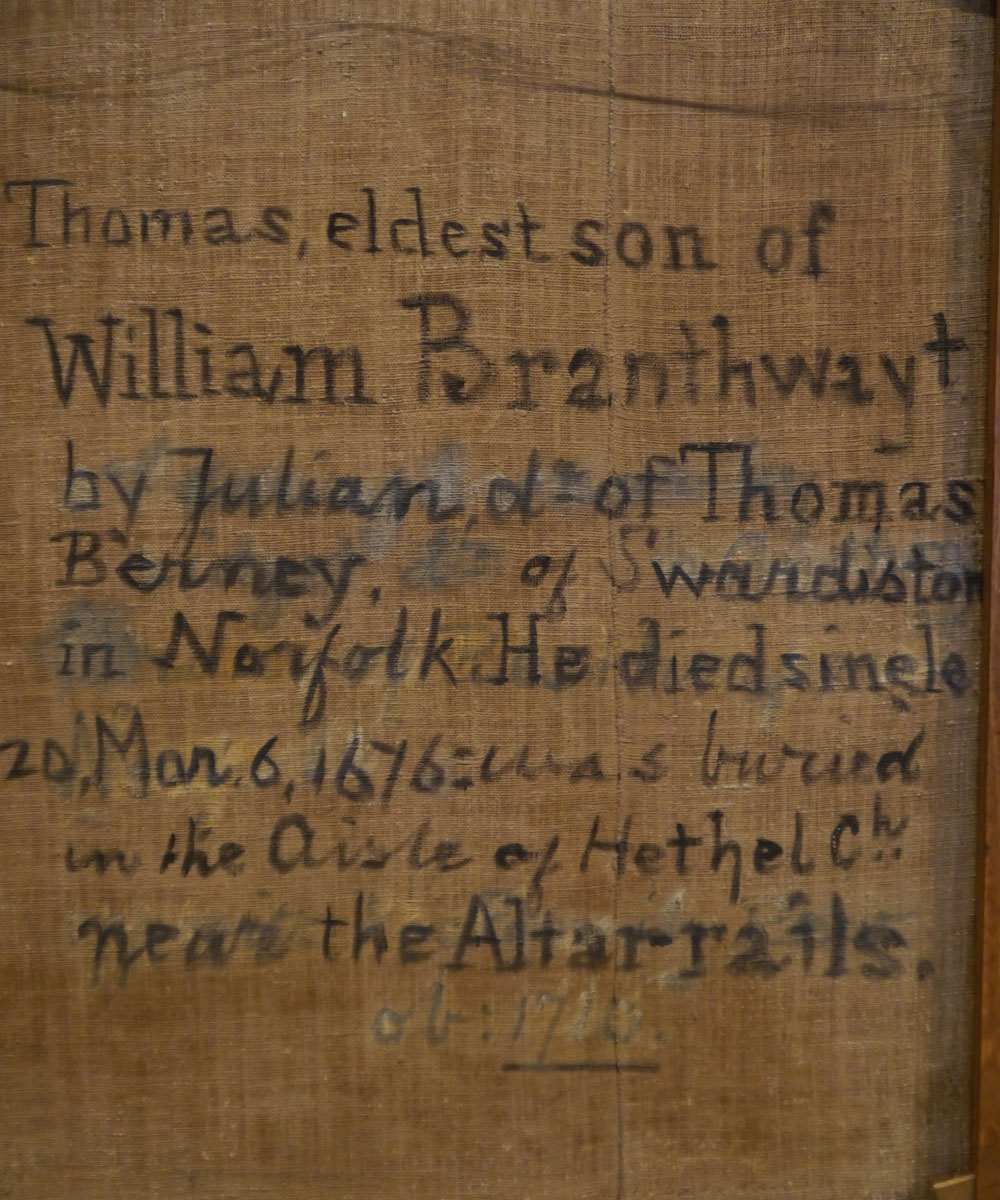 Thomas, eldest son of
William Branthwayt
by Julian, dr of Thomas
Berney, of Swardiston
in Norfolk. He died single
20, Mar. 6, 1676: was buried
in the Aisle of Hethel Ch.
near the Altar-rails.
ob: 1710.